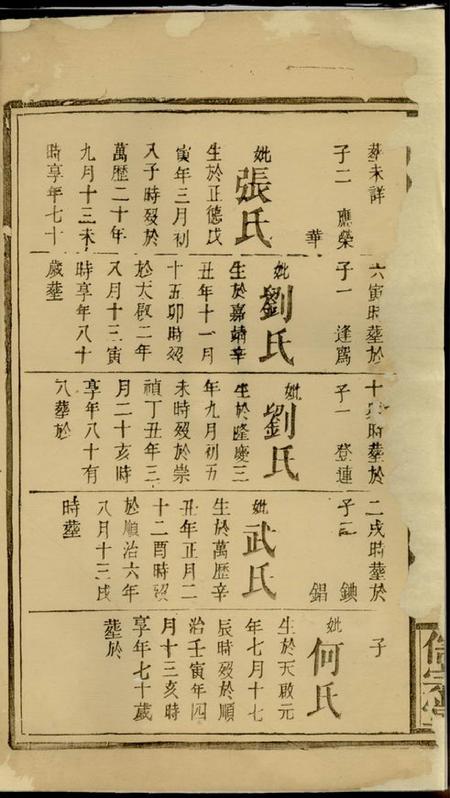 葬未詳
子二 應榮
華
妣張氏
生於正德戊
寅年三月初
八子時歿於
萬歷二十年
九月十三未
時享年七十
六寅時葬於
子一 逢爲
妣劉氏
生於嘉靖辛
丑年十一月
十五卯時歿
於天啟二年
八月十三寅
時享年八十
歲葬
十 時葬於
子一 登連
妣劉氏
生於隆慶三
年九月初五
未時歿於崇
禎丁丑年三
月二十亥時
享年八十有
八葬於
二戌時葬於
子二 鐭
錩
妣武氏
生於萬歷辛
丑年正月二
十二酉時歿
於順治六年
八月十三戌
時葬
子
妣何氏
生於天啟元
年七月十七
辰時歿於順
治壬寅年四
月十三亥時
享年七十歲
葬於